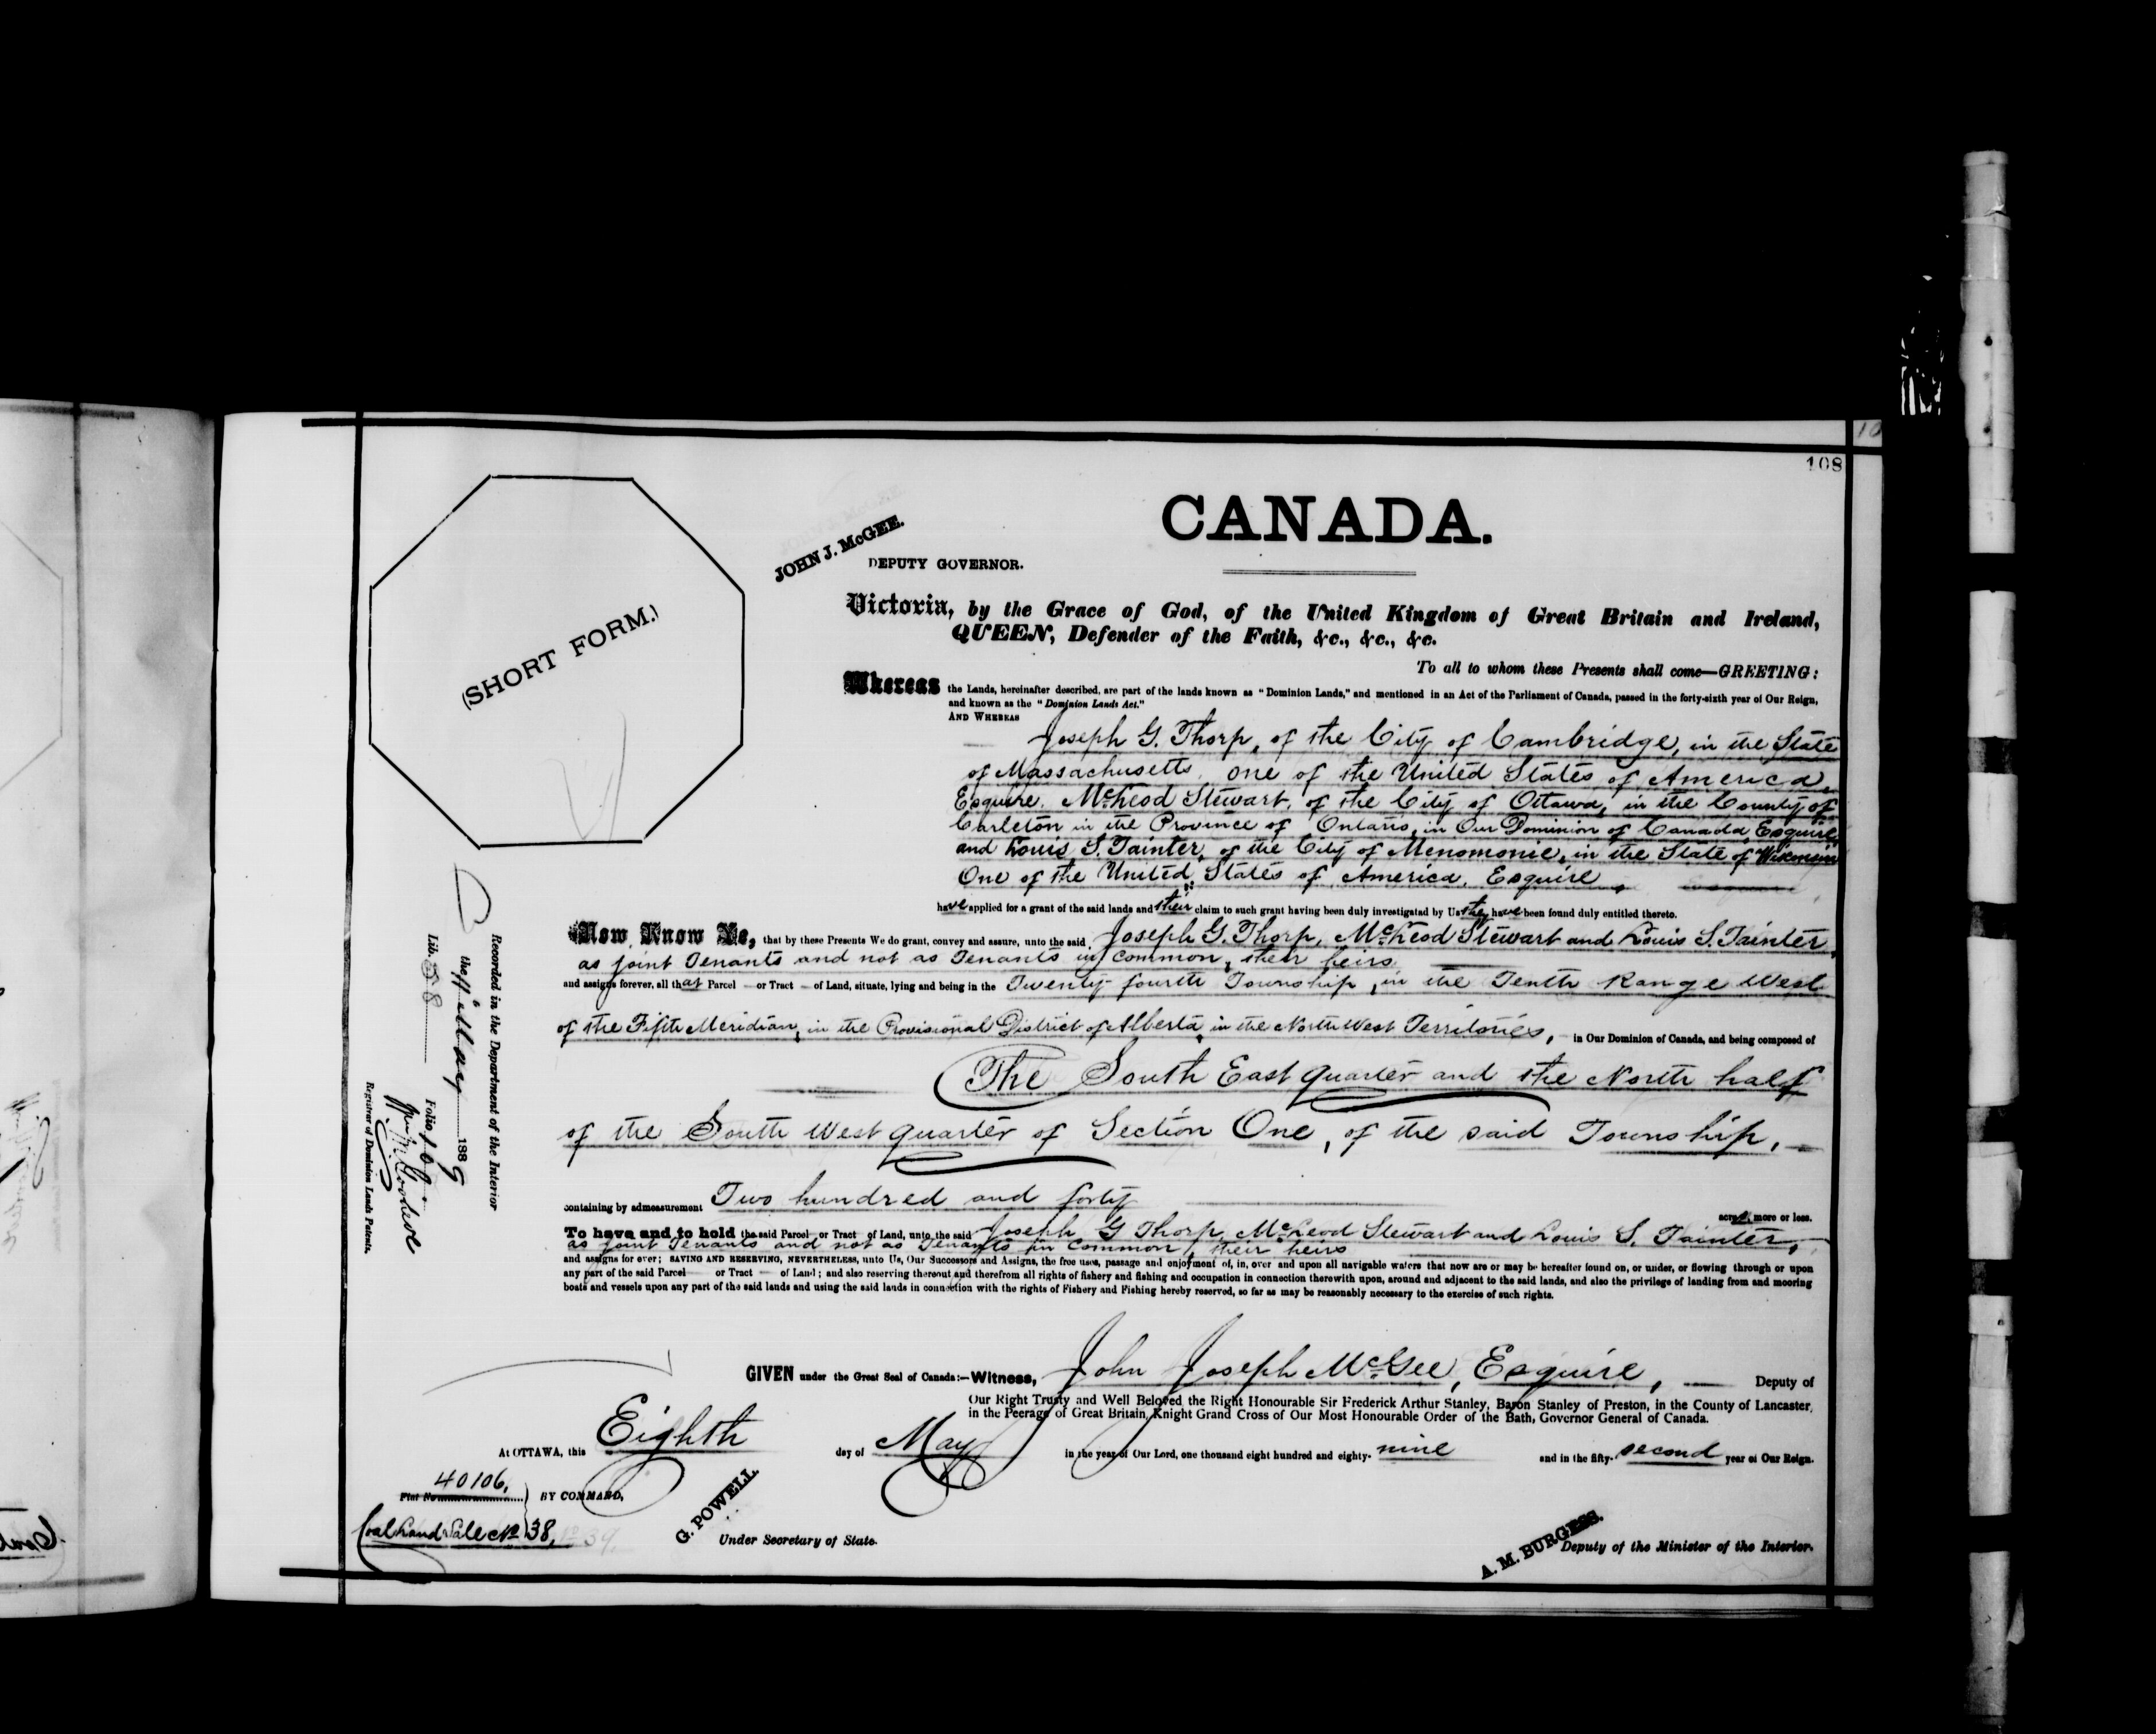 10
108
CANADA.
JOHN J. McGEE.
DEPUTY GOVERNOR.
(SHORT FORM.)
Victoria, by the Grace of God, of the United Kingdom of Great Britain and Ireland,
QUEEN, Defender of the Faith, &c., &c., &c.
To all to whom these Presents shall come—GREETING:
Whereas the Lands, hereinafter described, are part of the lands known as "Dominion Lands," and mentioned in an Act of the Parliament of Canada, passed in the forty-sixth year of Our Reign,
and known as the "Dominion Lands Act."
AND WHEREAS
Joseph G. Thorp, of the City of Cambridge, in the State
of Massachusetts, one of the United States of America,
Esquire, McLeod Stewart, of the City of Ottawa, in the County of
Carleton in the Province of Ontario, in Our Dominion of Canada, Esquire,
and Louis S. Tainter, of the City of Menomonie, in the State of Wisconsin
One of the United States of America, Esquire,
have applied for a grant of the said lands and their claim to such grant having been duly investigated by Us they have been found duly entitled thereto.
Now Know Ye, that by these Presents We do grant, convey and assure, unto the said Joseph G. Thorp, McLeod Stewart and Louis S. Tainter,
as joint Tenants and not as Tenants in common, their heirs
and assigns forever, all that Parcel — or Tract — of Land, situate, lying and being in the Twenty fourth Township, in the Tenth Range West
of the Fifth Meridian, in the Provisional District of Alberta, in the North West Territories, in Our Dominion of Canada, and being composed of
The South East quarter and the North half
of the South West quarter of Section One, of the said Township,
containing by admeasurement Two hundred and forty
acres, more or less.
To have and to hold the said Parcel or Tract of Land, unto the said Joseph G Thorp, McLeod Stewart and Louis S. Tainter,
as joint Tenants and not as Tenants in Common, their heirs
and assigns for ever; SAVING AND RESERVING, NEVERTHELESS, unto Us, Our Successors and Assigns, the free uses, passage and enjoyment of, in, over and upon all navigable waters that now are or may be hereafter found on, or under, or flowing through or upon
any part of the said Parcel or Tract of Land; and also reserving thereout and therefrom all rights of fishery and fishing and occupation in connection therewith upon, around and adjacent to the said lands, and also the privilege of landing from and mooring
boats and vessels upon any part of the said lands and using the said lands in connection with the rights of Fishery and Fishing hereby reserved, so far as may be reasonably necessary to the exercise of such rights.
GIVEN under the Great Seal of Canada:—Witness, John Joseph McGee, Esquire, — Deputy of
Our Right Trusty and Well Beloved the Right Honourable Sir Frederick Arthur Stanley, Baron Stanley of Preston, in the County of Lancaster,
in the Peerage of Great Britain, Knight Grand Cross of Our Most Honourable Order of the Bath, Governor General of Canada.
At OTTAWA, this Eighth day of May in the year of Our Lord, one thousand eight hundred and eighty-nine and in the fifty-second year of Our Reign.
40106.
Fiat No
BY COMMAND,
Coal Land Sale No 38, No 39.
G. POWELL
Under Secretary of State.
A. M. BURGESS.
Deputy of the Minister of the Interior.
Recorded in the Department of the Interior
the May 1889
Lib. 58 Folio 108
Registrar of Dominion Lands Patents.